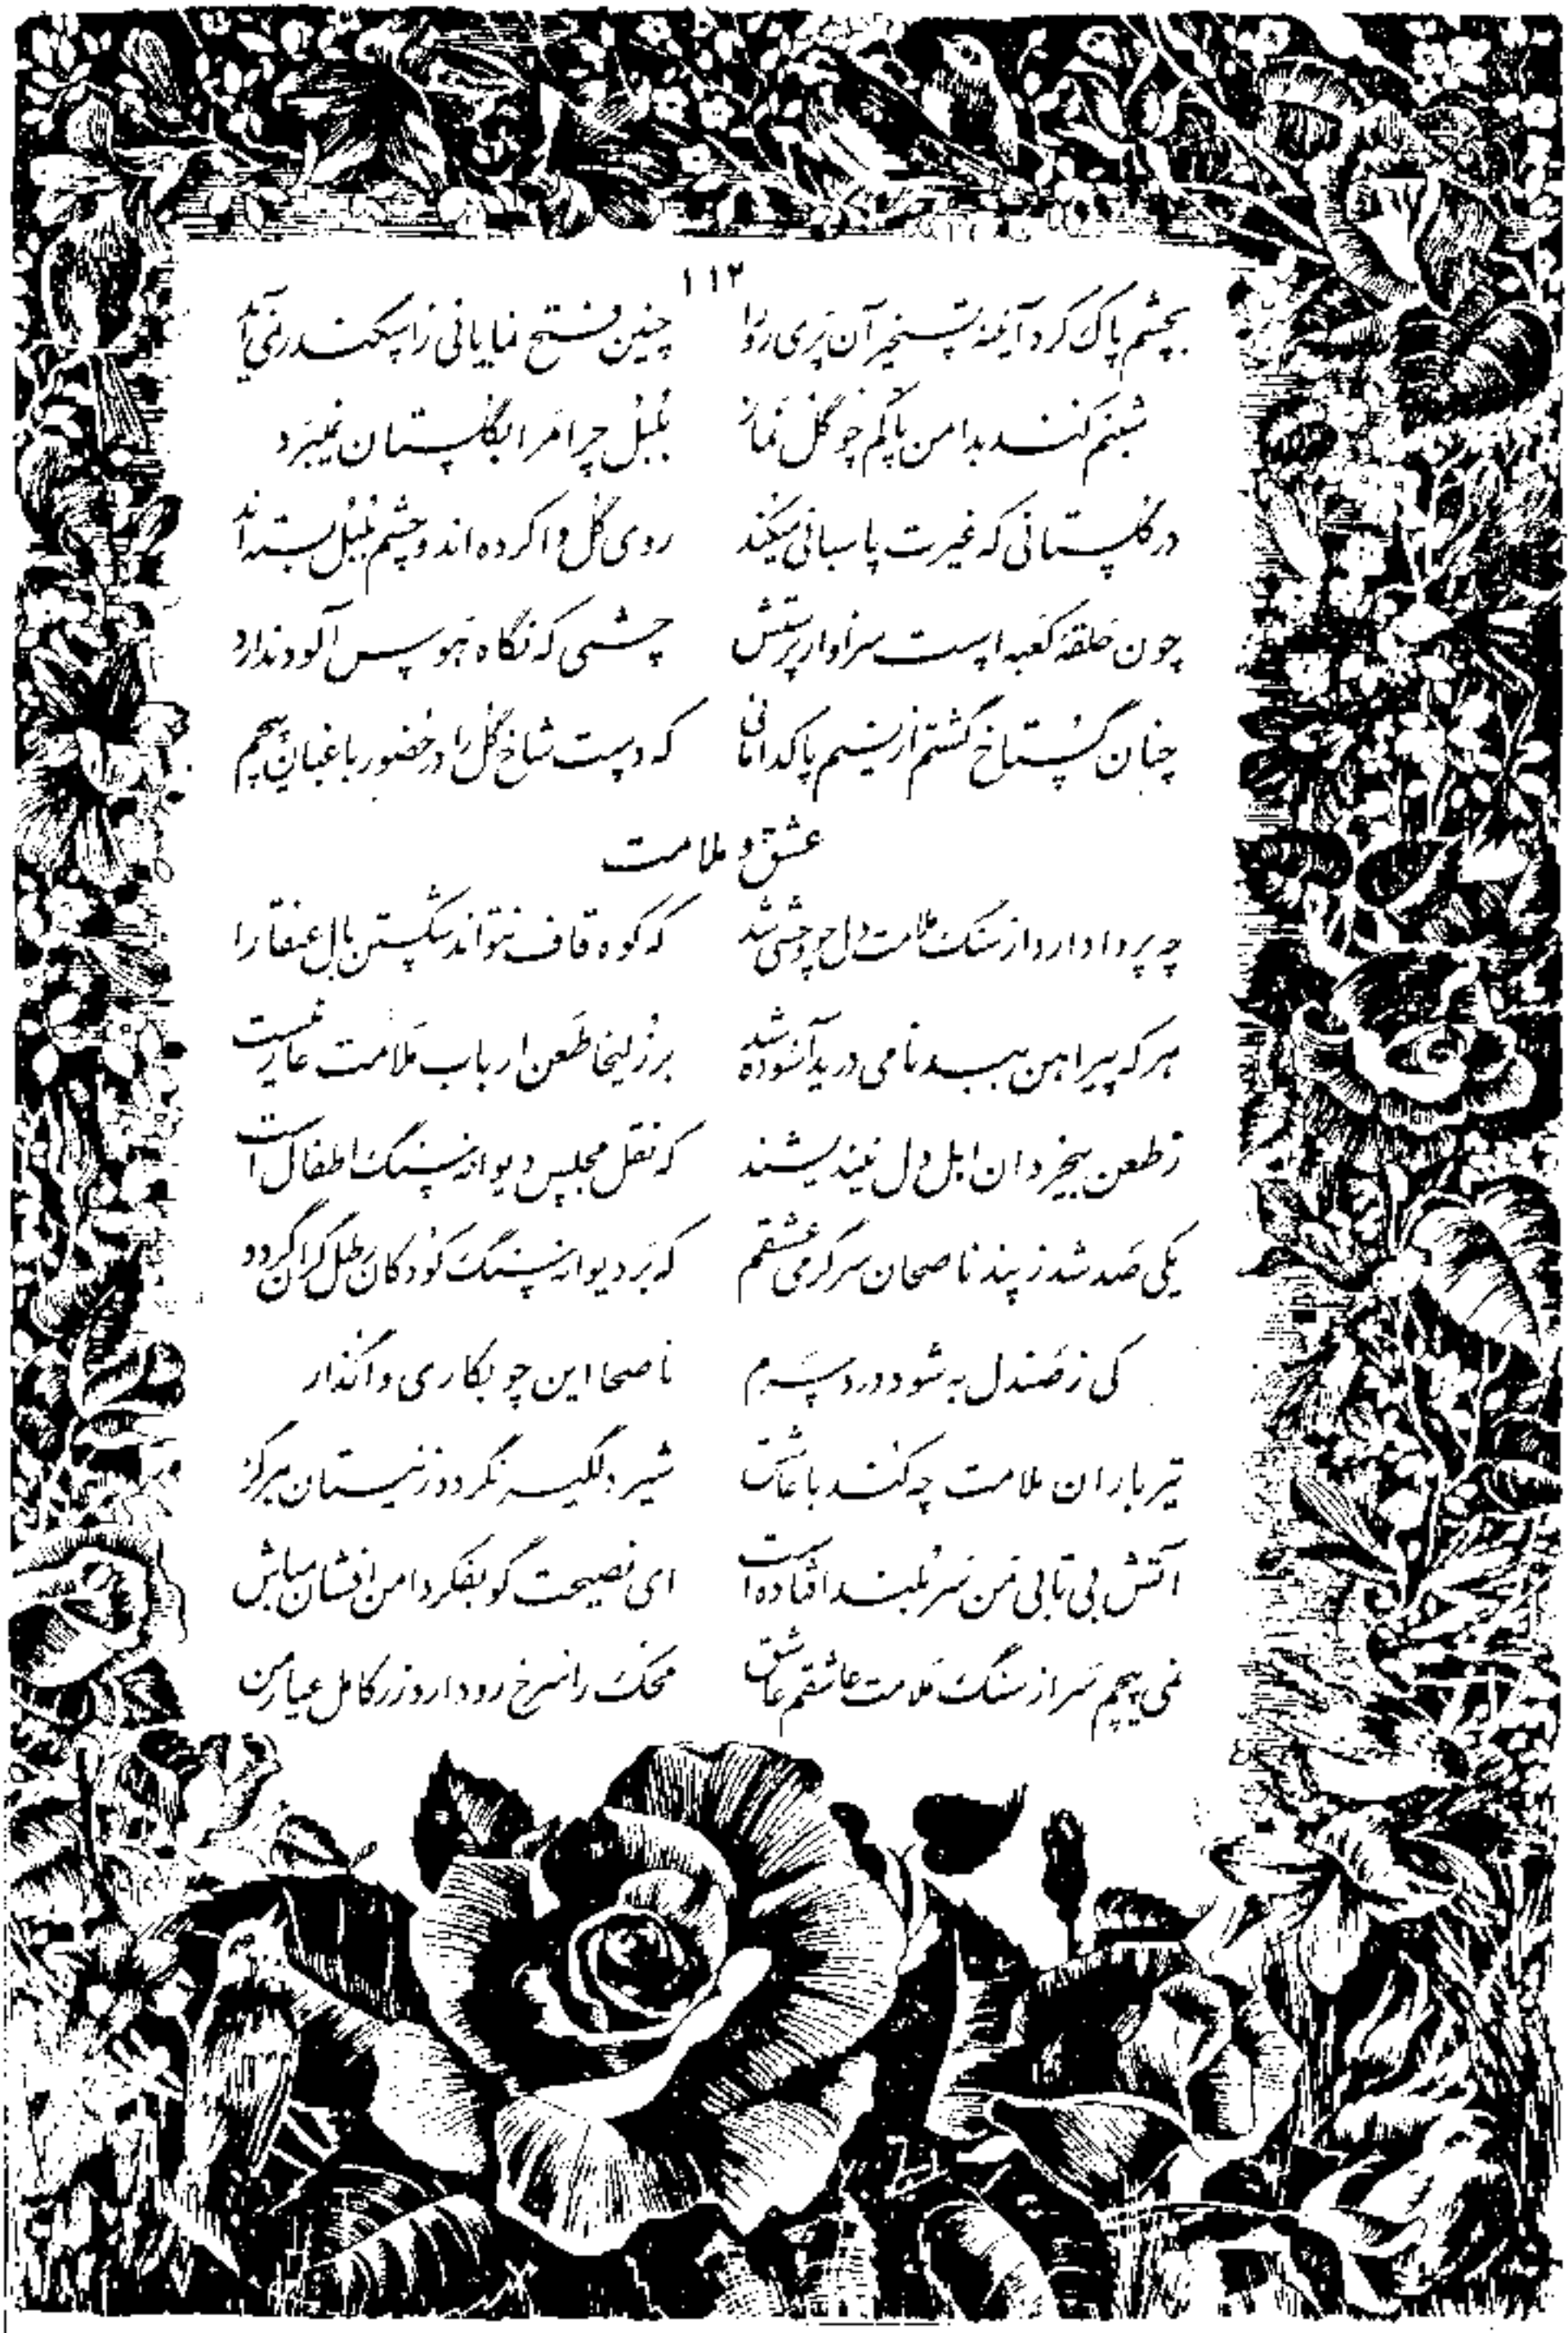 ۱۱۲
بچشم پاک کرد آینه تسخیر آن پری رو را چنین فتح نمایانی ز اسکندر نمی آید
شبنم کند بدامن پاکم چو گل نماز بلبل چرا مرا بگلستان نمیبرد
در گلستانی که غیرت پاسبانی میکند روی گل وا کرده اند و چشم بلبل بسته اند
چون حلقهٔ کعبه است سزاوار پرستش چشمی که نگاه هوس آلود ندارد
چنان گستاخ گشتم از نسیم پاکدامانی که دست شاخ گل را در حضور باغبان پیچم
عشق و ملامت
چه پروا دارد از سنگ ملامت دل چو وحشی شد که کوه قاف نتواند شکستن بال عنقا را
هر که پیراهن ببدنامی درید آسوده شد بر زلیخا طعن ارباب ملامت عار نیست
ز طعن بیخردان اهل دل نیندیشند که نقل مجلس دیوانه سنگ اطفال است
یکی صد شد ز پند ناصحان سرگرمی عشقم که بر دیوانه سنگ کودکان رطل گران گردد
کی ز صندل به شود درد سرم ناصحا این چوبکاری واگذار
تیرباران ملامت چه کند با عاشق شیر دلگیر نگردد ز نیستان هرگز
آتش بی تابی من سر بلند افتاده است ای نصیحت گو بفکر دامن افشان مباش
نمی پیچم سر از سنگ ملامت عاشقم عاشق محک را سرخ رو دارد زر کامل عیار من